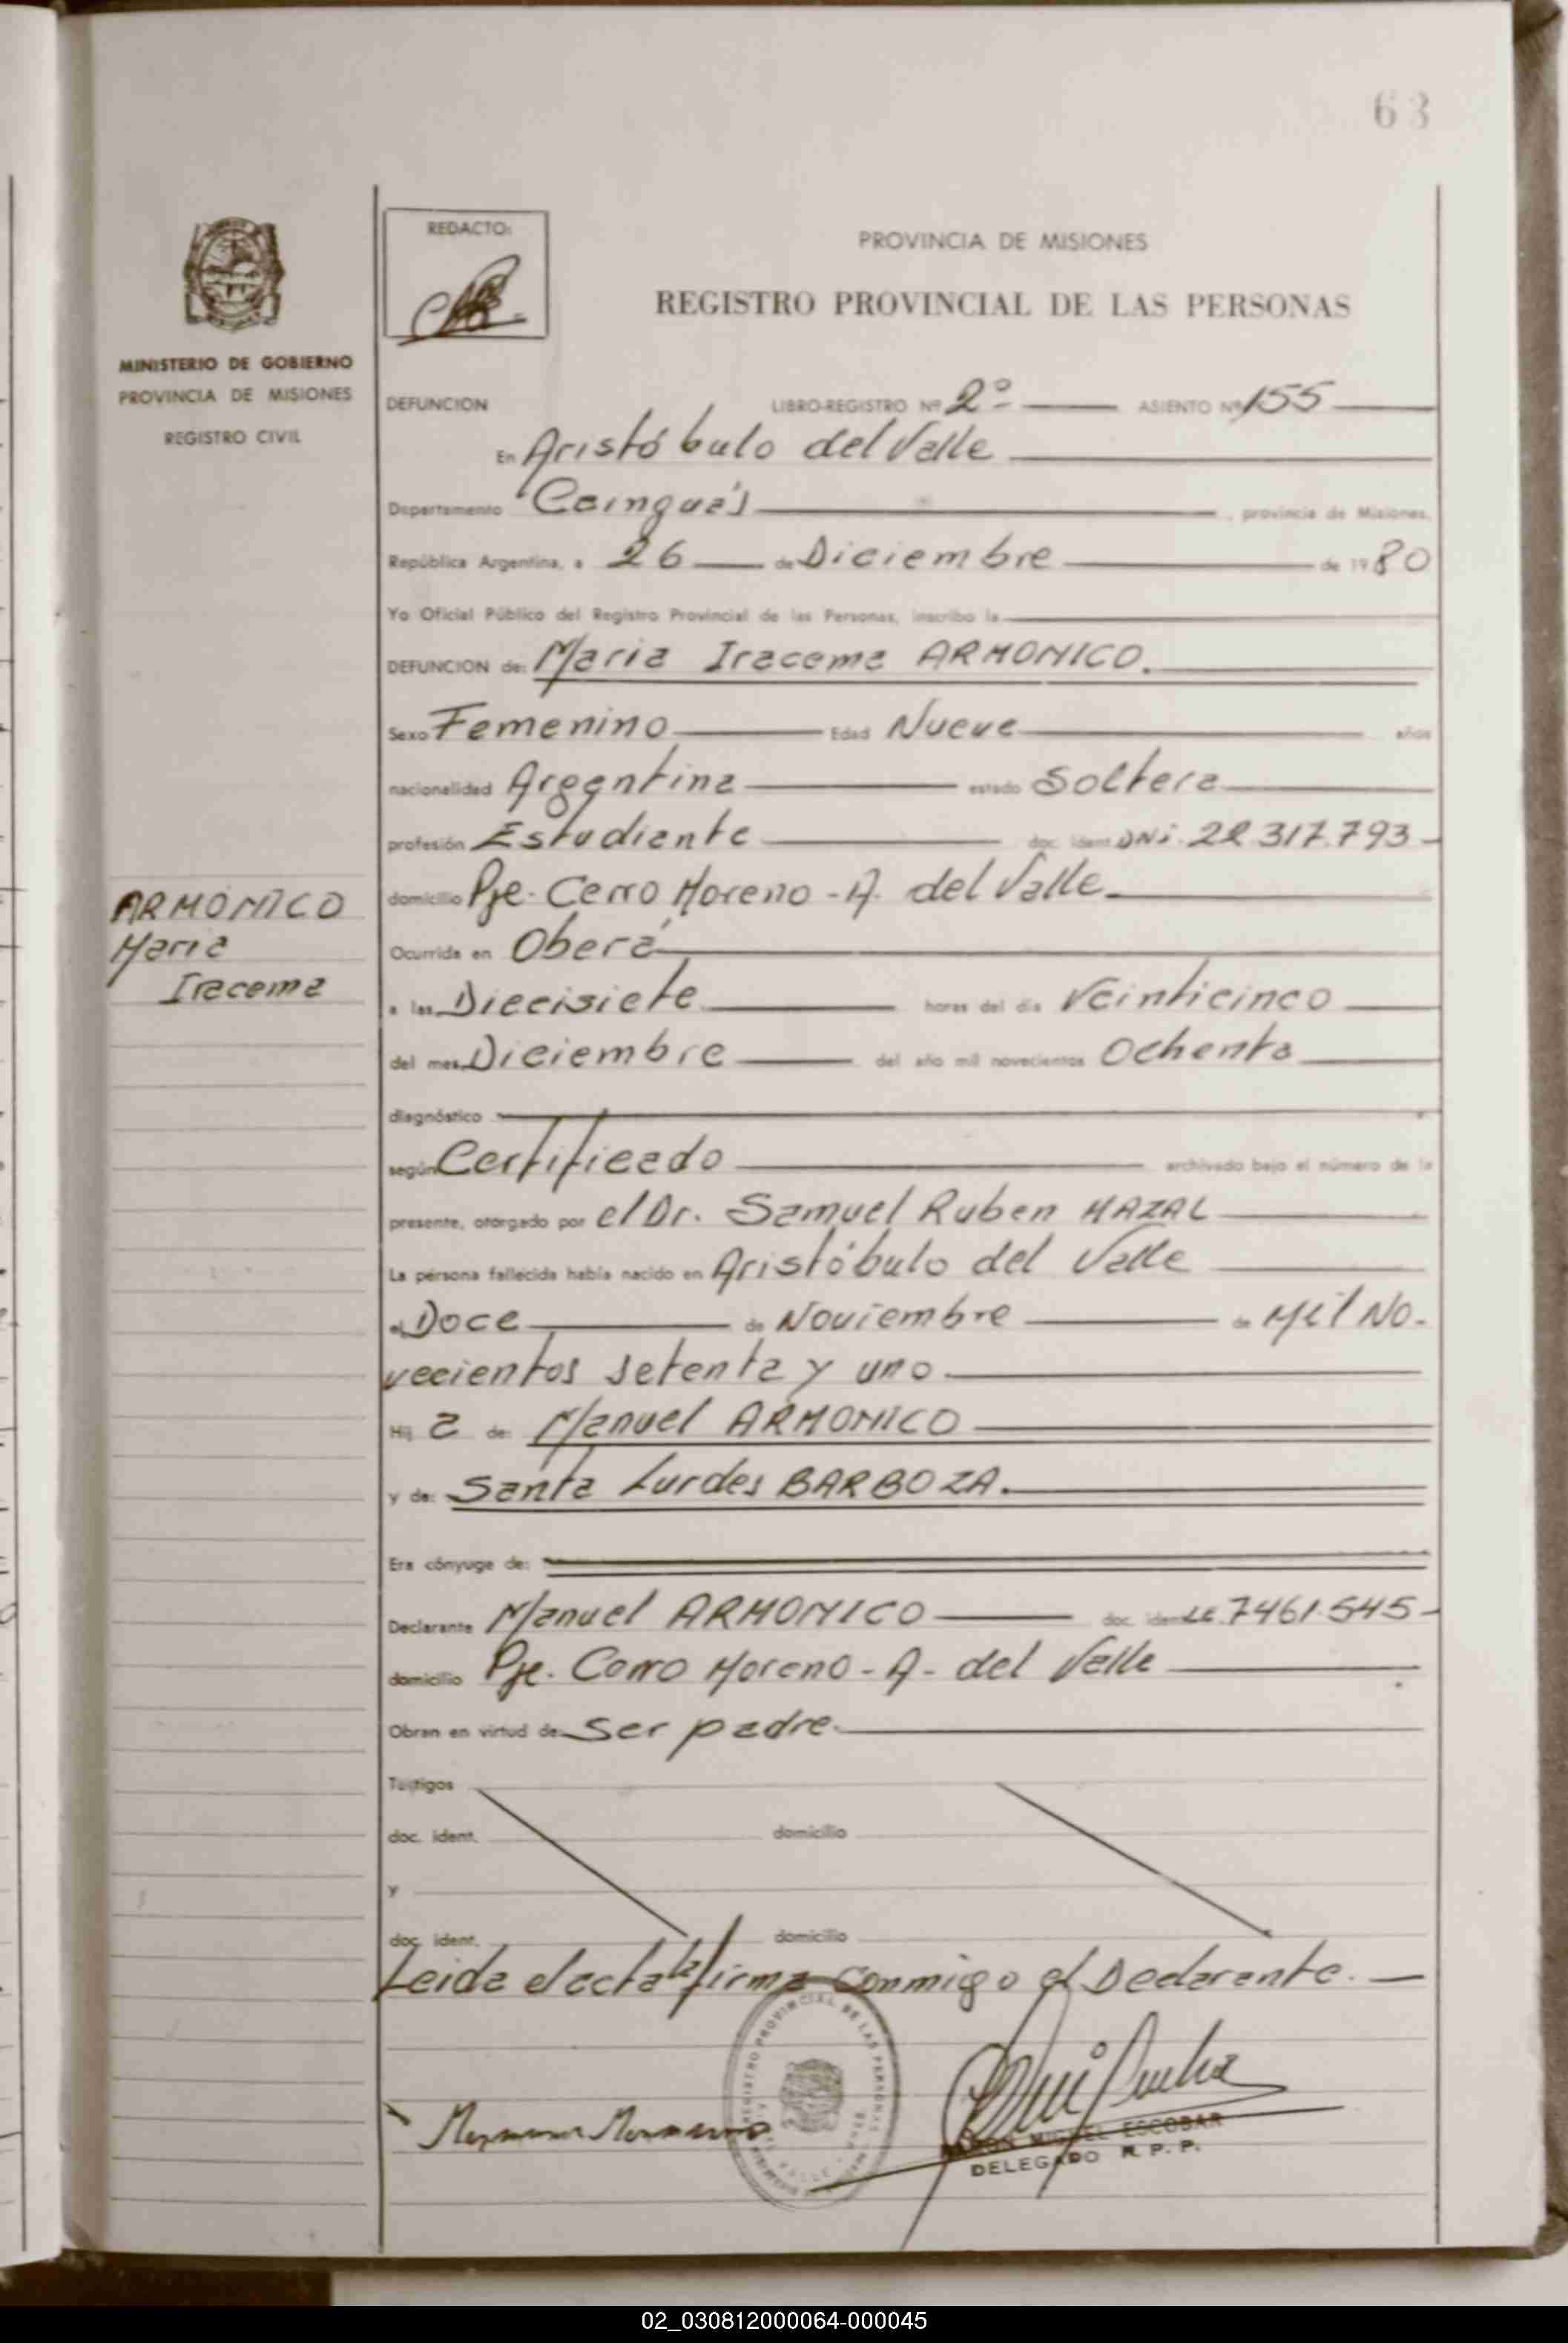 63
REDACTO:
PROVINCIA DE MISIONES
REGISTRO PROVINCIAL DE LAS PERSONAS
MINISTERIO DE GOBIERNO
PROVINCIA DE MISIONES
REGISTRO CIVIL
DEFUNCION LIBRO-REGISTRO Nº 2º ASIENTO Nº 155
En Aristóbulo del Valle
Departamento Cainguás, provincia de Misiones,
República Argentina, a 26 de Diciembre de 1980
Yo Oficial Público del Registro Provincial de las Personas, inscribo la
DEFUNCION de: Maria Iracema ARMONICO.
Sexo Femenino Edad Nueve años
nacionalidad Argentina estado Soltera
profesión Estudiante doc. ident. DNi. 22.317.793
domicilio Pje. Cerro Moreno - A. del Valle
ARMONICO
Maria
Iracema
Ocurrida en Oberá
a las Diecisiete horas del día Veinticinco
del mes Diciembre del año mil novecientos Ochenta
diagnóstico
según Certificado archivado bajo el número de la
presente, otorgado por el Dr. Samuel Ruben MAZAL
La persona fallecida había nacido en Aristóbulo del Valle
el Doce de Noviembre de Mil No-
vecientos setenta y uno
Hij a de: Manuel ARMONICO
y de: Santa Lurdes BARBOZA.
Era cónyuge de:
Declarante Manuel ARMONICO doc. ident. LE. 7461.545
domicilio Pje. Cerro Moreno - A- del Valle
Obran en virtud de ser padre
Testigos
doc. ident. domicilio
y
doc. ident. domicilio
Leida el acta la firma conmigo el Declarante.
REGISTRO PROVINCIAL DE LAS PERSONAS
RAMON MIGUEL ESCOBAR
DELEGADO R. P. P.
02_030812000064-000045